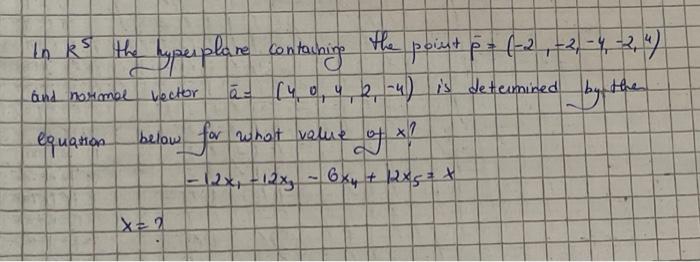 In R⁵ the hyperplane containing the point p̄ = (-2, -2, -4, -2, 4)
and normal vector ā = (4, 0, 4, 2, -4) is determined by the
equation below for what value of x?
-12x₁ -12x₃ - 6x₄ + 12x₅ = x
x = ?